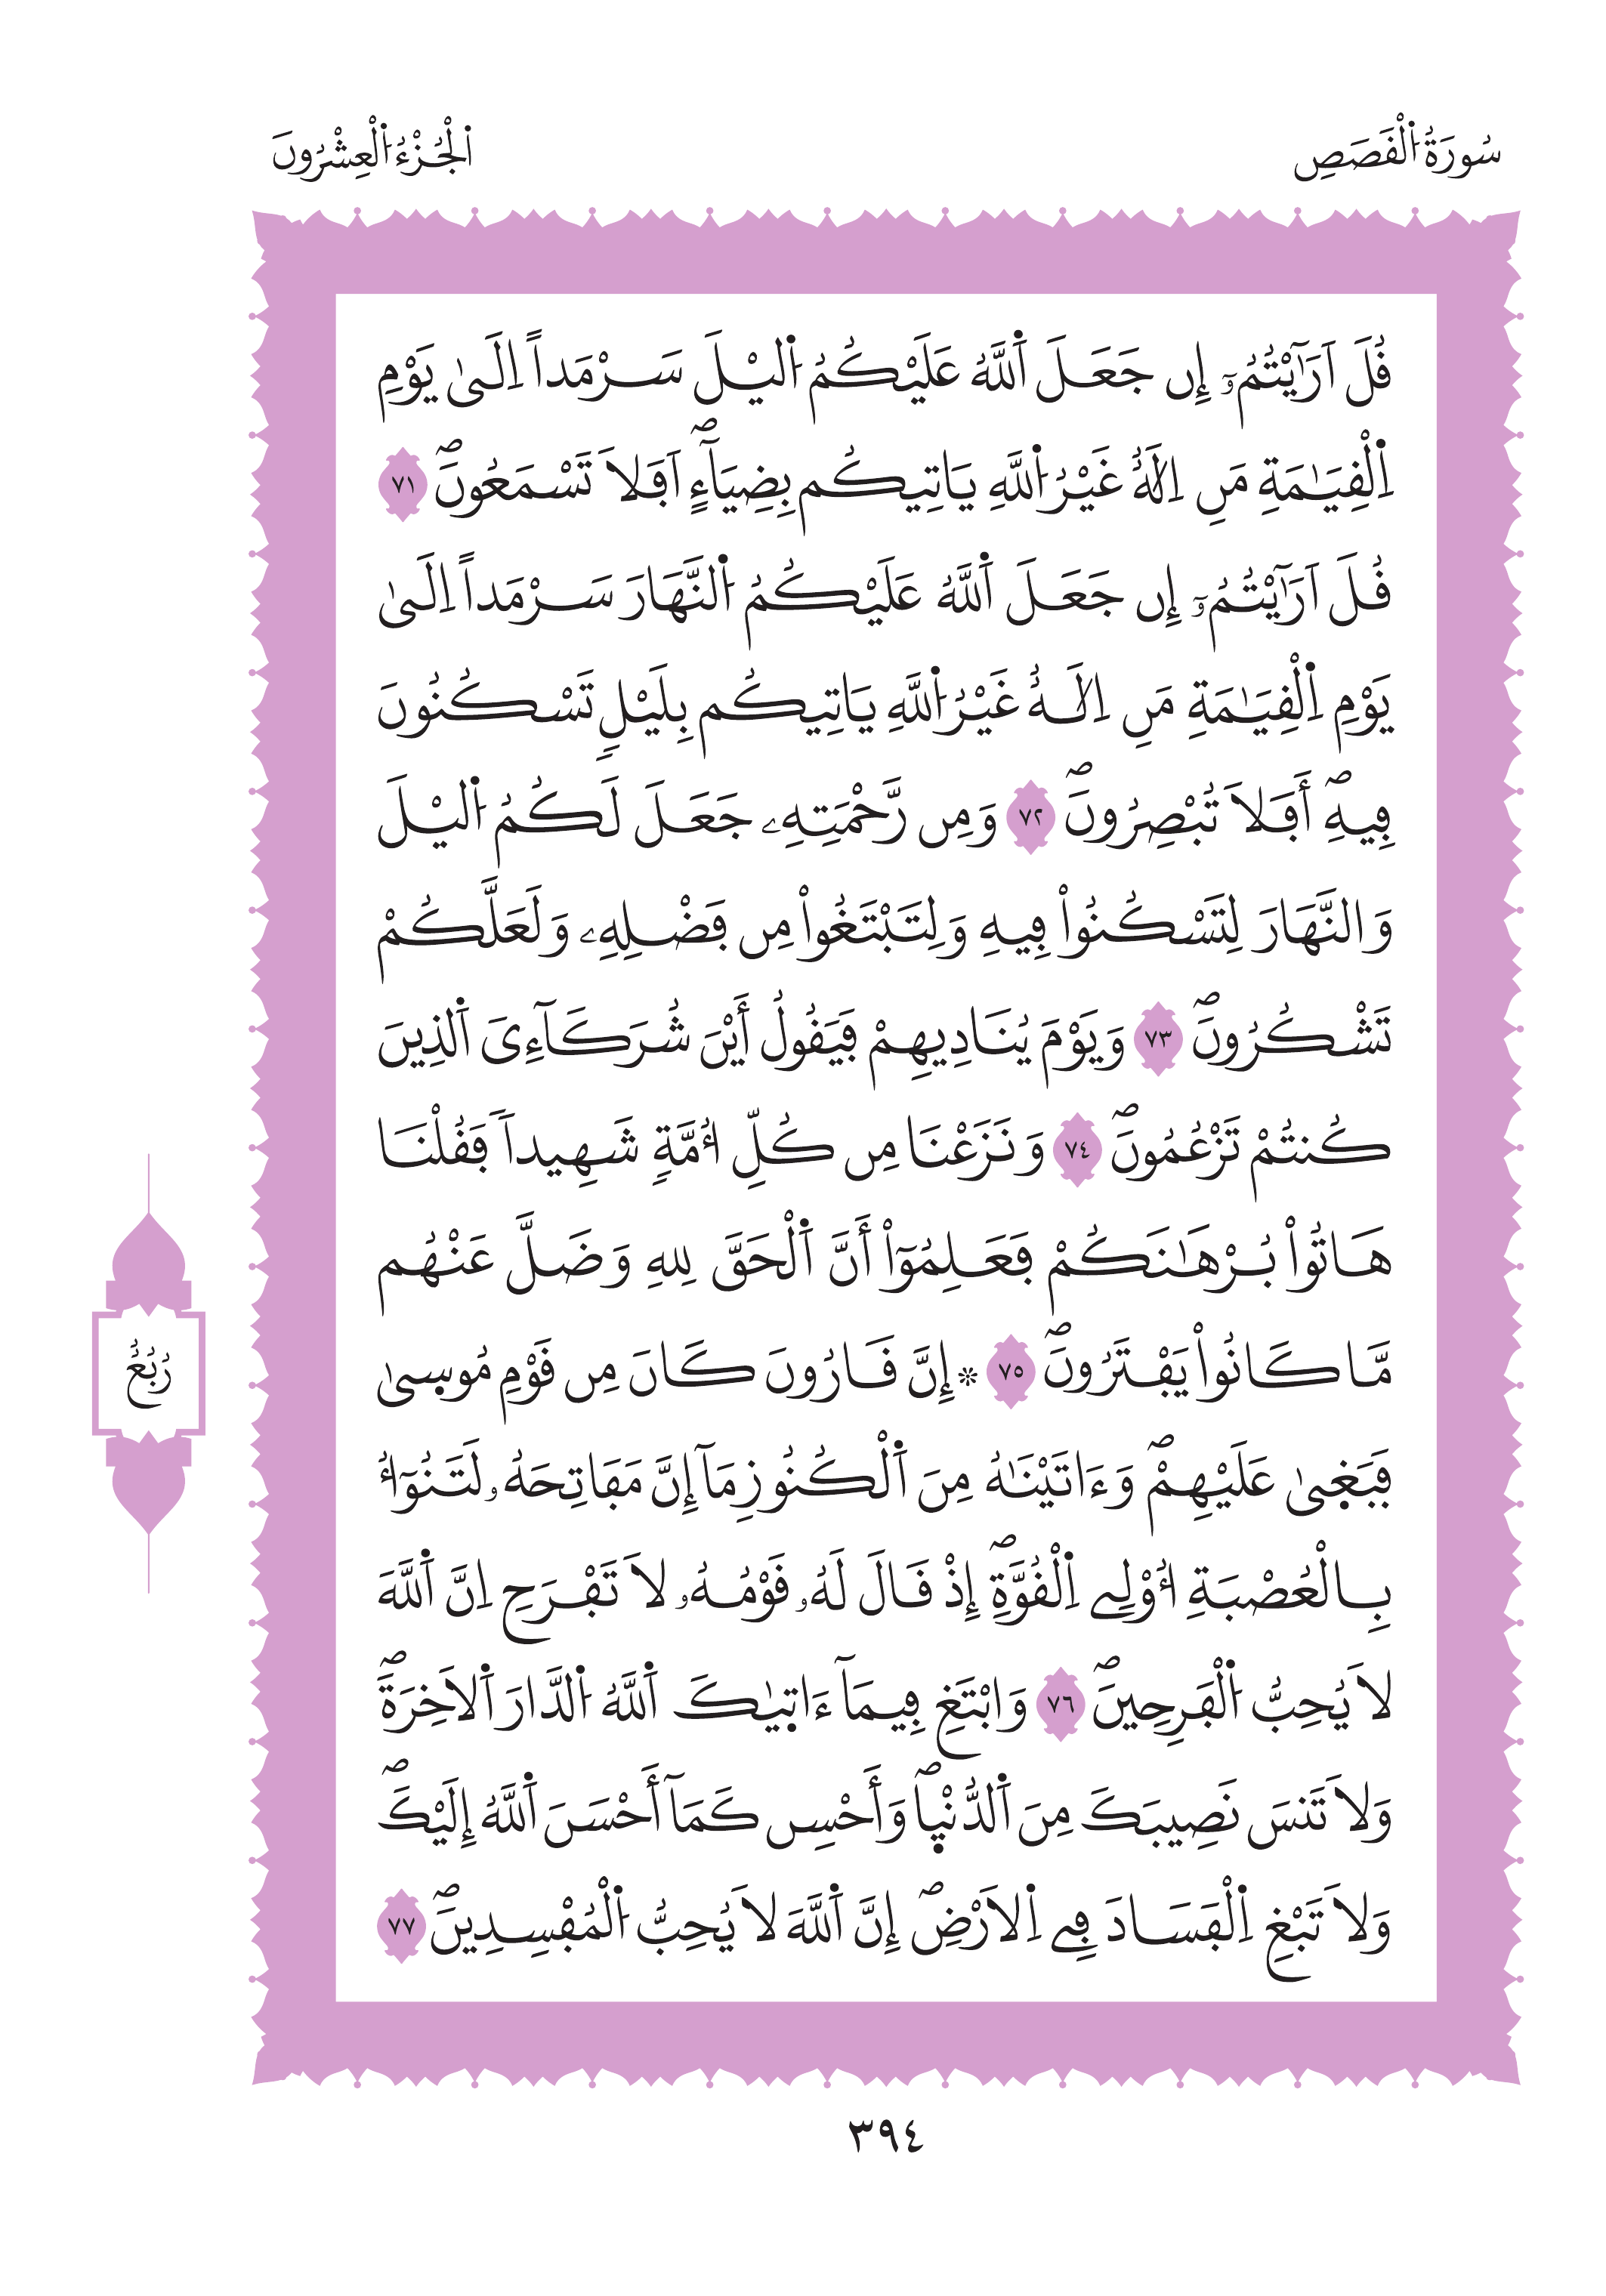 سُورَةُ اُ۬لْقَصَصِ
اَ۬لْجُزْءُ اُ۬لْعِشْرُونَ
قُلَ اَرَٰٓيْتُمُۥٓ إِن جَعَلَ اَ۬للَّهُ عَلَيْكُمُ اُ۬ليْلَ سَرْمَداً اِلَىٰ يَوْمِ
اِ۬لْقِيَٰمَةِ مَنِ اِلَٰهٌ غَيْرُ اُ۬للَّهِ يَاتِيكُم بِضِيَآءٍۖ اَفَلَا تَسْمَعُونَۖ ٧١
قُلَ اَرَٰٓيْتُمُۥٓ إِن جَعَلَ اَ۬للَّهُ عَلَيْكُمُ اُ۬لنَّهَارَ سَرْمَداً اِلَىٰ
يَوْمِ اِ۬لْقِيَٰمَةِ مَنِ اِلَٰهٌ غَيْرُ اُ۬للَّهِ يَاتِيكُم بِلَيْلٖ تَسْكُنُونَ
فِيهِۖ أَفَلَا تُبْصِرُونَۖ ٧٢ وَمِن رَّحْمَتِهِۦ جَعَلَ لَكُمُ اُ۬ليْلَ
وَالنَّهَارَ لِتَسْكُنُواْ فِيهِ وَلِتَبْتَغُواْ مِن فَضْلِهِۦ وَلَعَلَّكُمْ
تَشْكُرُونَۖ ٧٣ وَيَوْمَ يُنَادِيهِمْ فَيَقُولُ أَيْنَ شُرَكَآءِىَ اَ۬لذِينَ
كُنتُمْ تَزْعُمُونَۖ ٧٤ وَنَزَعْنَا مِن كُلِّ أُمَّةٖ شَهِيداٗ فَقُلْنَا
هَاتُواْ بُرْهَٰنَكُمْ فَعَلِمُوٓاْ أَنَّ اَ۬لْحَقَّ لِلهِ وَضَلَّ عَنْهُم
مَّا كَانُواْ يَفْتَرُونَۖ ٧٥ ۞ إِنَّ قَٰرُونَ كَانَ مِن قَوْمِ مُوسِىٰ
فَبَغِىٰ عَلَيْهِمْۖ وَءَاتَيْنَٰهُ مِنَ اَ۬لْكُنُوزِ مَآ إِنَّ مَفَاتِحَهُۥ لَتَنُوٓأُ
بِالْعُصْبَةِ أُوْلِے اِ۬لْقُوَّةِۖ إِذْ قَالَ لَهُۥ قَوْمُهُۥ لَا تَفْرَحِ اِنَّ اَ۬للَّهَ
لَا يُحِبُّ اُ۬لْفَرِحِينَۖ ٧٦ وَابْتَغِ فِيمَآ ءَاتِيٰكَ اَ۬للَّهُ اُ۬لدَّارَ اَ۬لَاخِرَةَۖ
وَلَا تَنسَ نَصِيبَكَ مِنَ اَ۬لدُّنْيِاۖ وَأَحْسِن كَمَآ أَحْسَنَ اَ۬للَّهُ إِلَيْكَۖ
وَلَا تَبْغِ اِ۬لْفَسَادَ فِے اِ۬لَارْضِۖ إِنَّ اَ۬للَّهَ لَا يُحِبُّ اُ۬لْمُفْسِدِينَۖ ٧٧
رُبُعٌ
٣٩٤